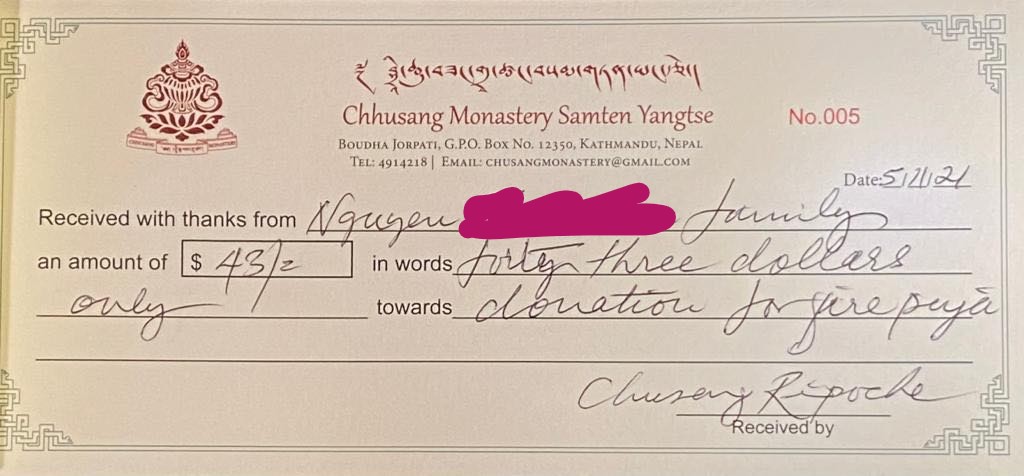 Chhusang Monastery Samten Yangtse
No.005
Boudha Jorpati, G.P.O. Box No. 12350, Kathmandu, Nepal
Tel: 4914218 | Email: chusangmonastery@gmail.com
Date: 5/21/21
Received with thanks from Nguyen family
an amount of $ 43/= in words forty three dollars
only towards donation for fire puja
Chusang Ripoche
Received by